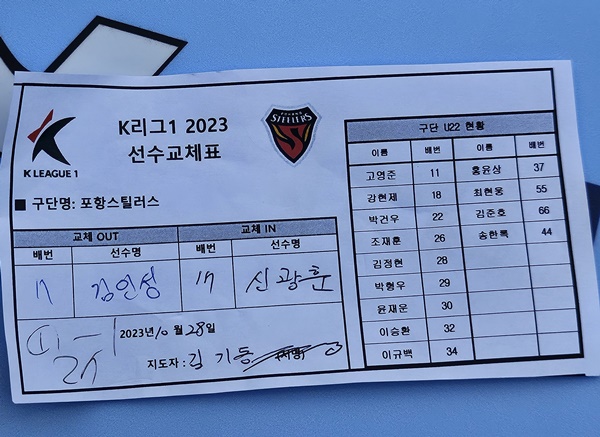 K리그1 2023
선수교체표
K LEAGUE 1
STEELERS
■ 구단명: 포항스틸러스
교체 OUT 교체 IN
배번 선수명 배번 선수명
7 김인성 17 신광훈
2023년 10월 28일
지도자 : 김기동 (서명)
구단 U22 현황
이름 배번 이름 배번
고영준 11 홍윤상 37
강현제 18 최현웅 55
박건우 22 김준호 66
조재훈 26 송한록 44
김정현 28
박형우 29
윤재운 30
이승환 32
이규백 34